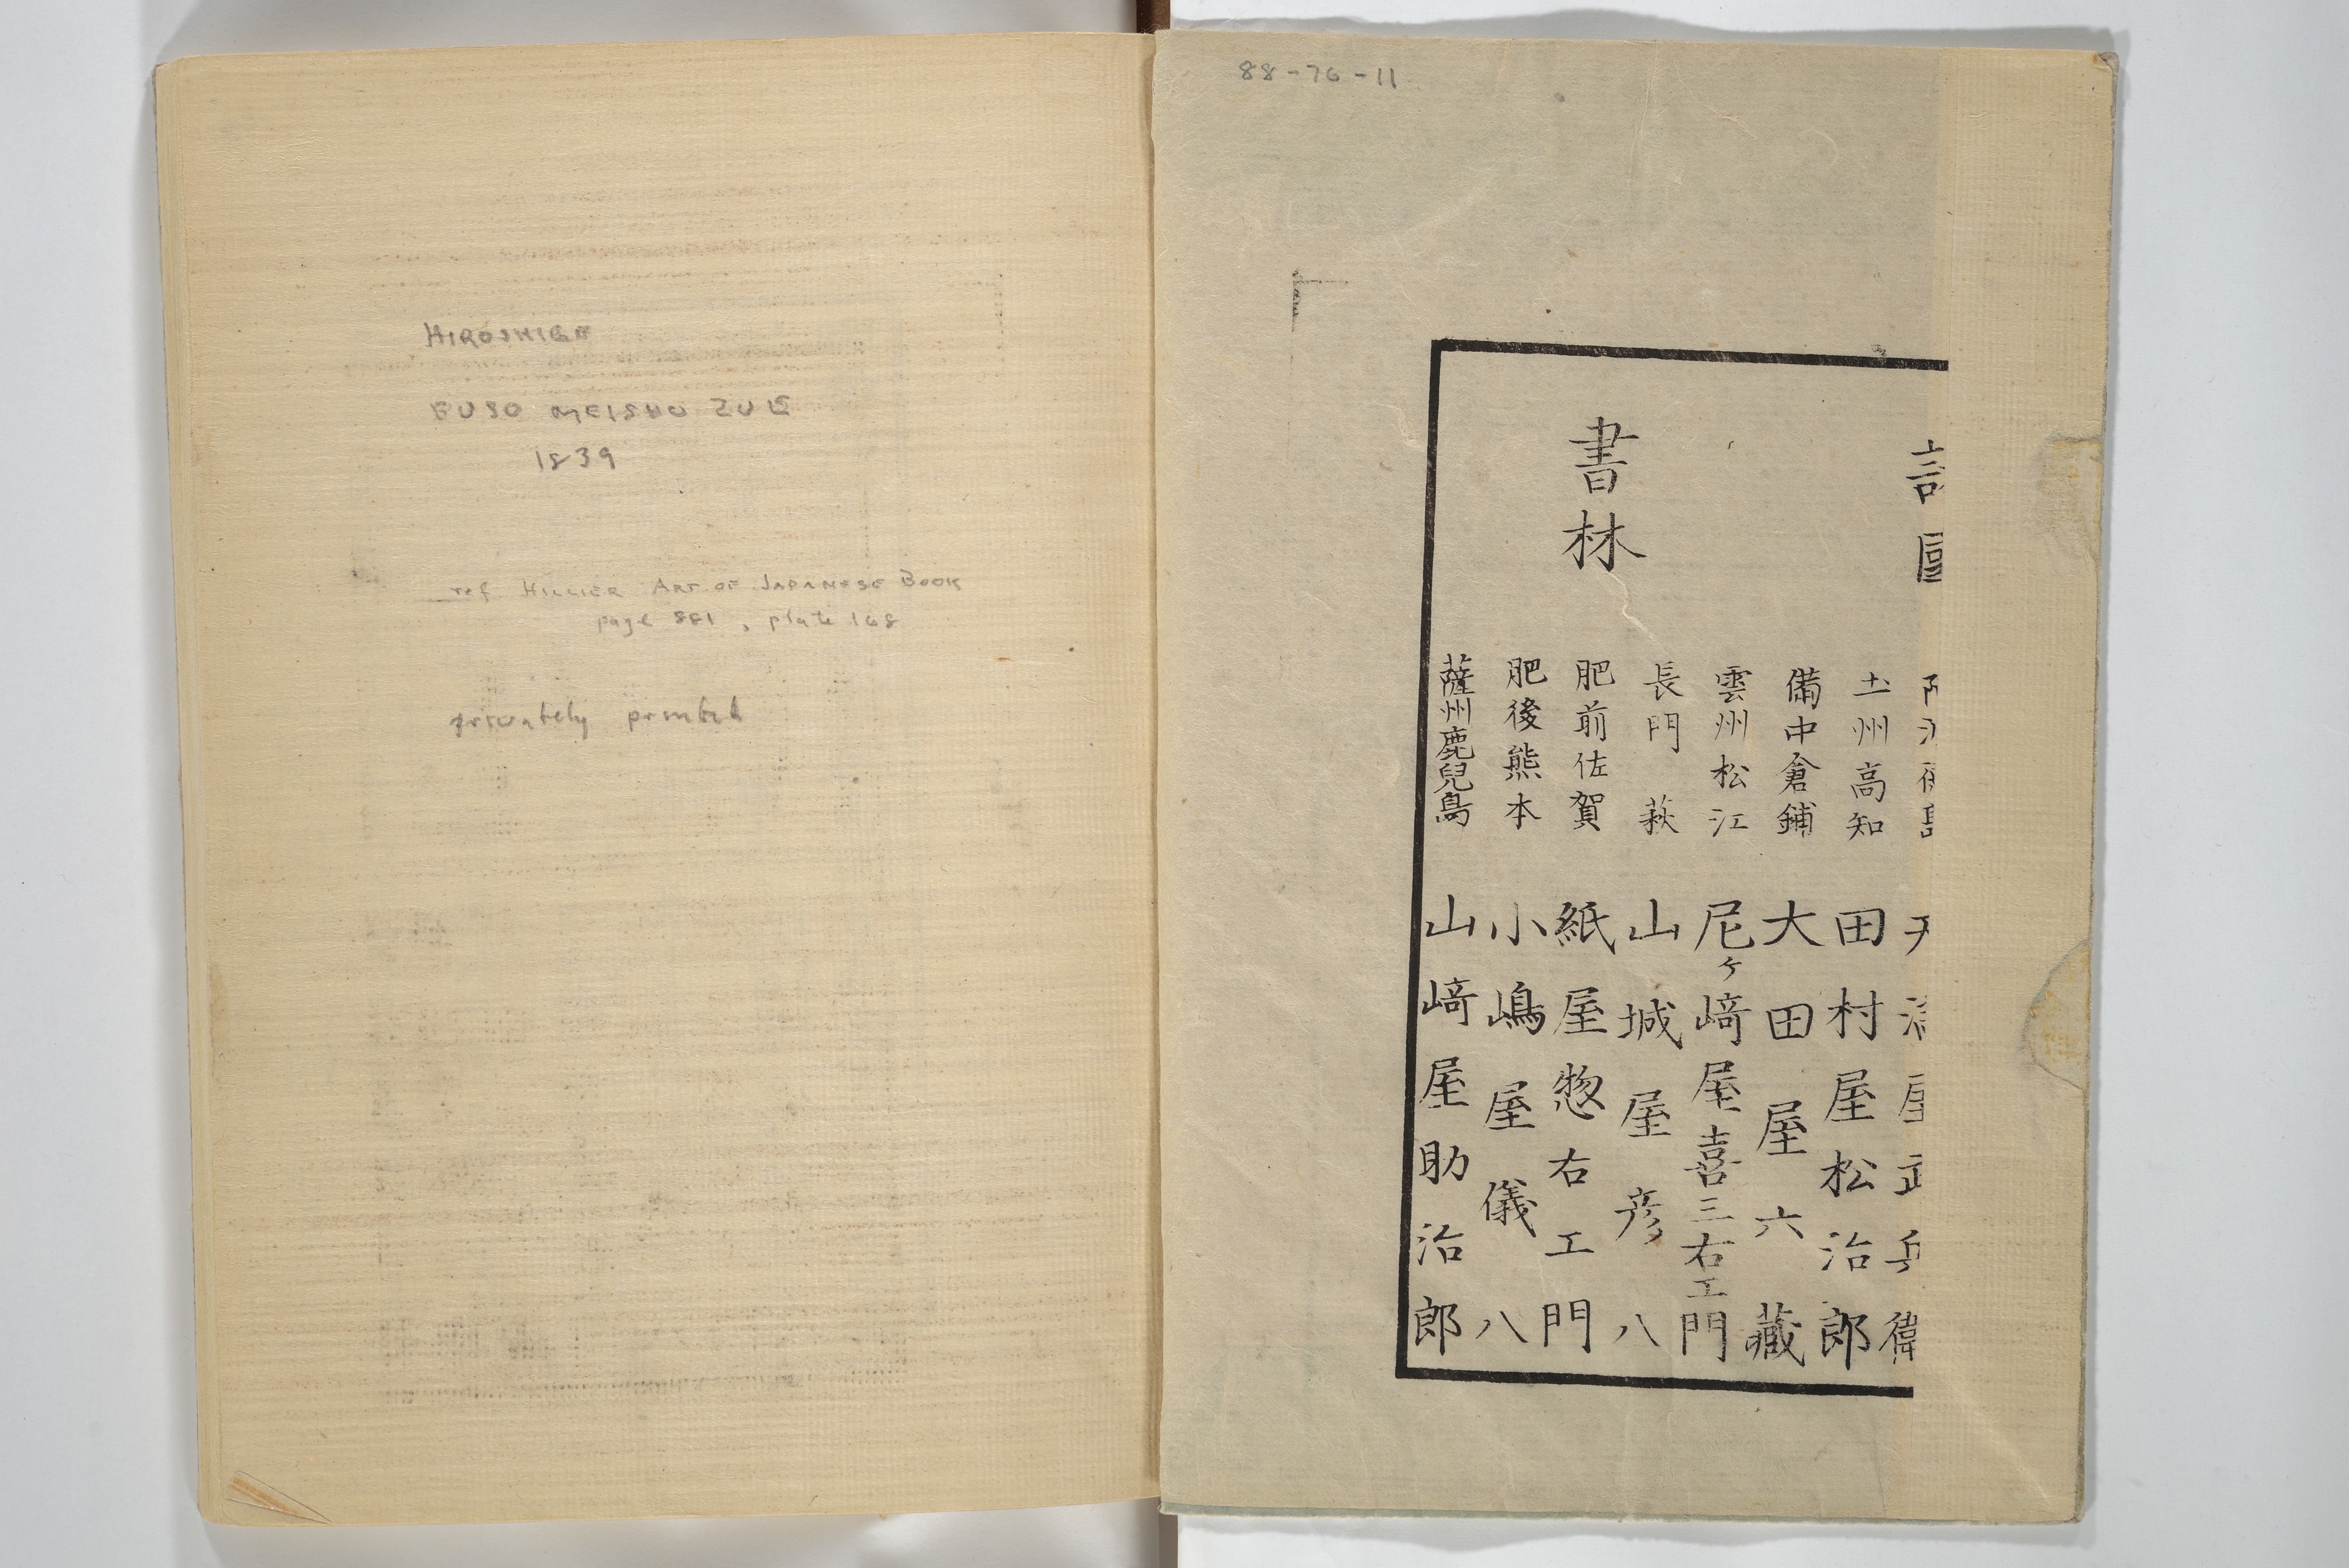 HIROSHIGE
FUSO MEISHO ZUE
1839
ref HILLIER ART OF JAPANESE BOOK
page 881, plate 168
privately printed
88-76-11
土州高知 田村屋松治郎
備中倉鋪 大田屋六藏
雲州松江 尼ヶ﨑屋喜三右エ門
長門萩 山城屋彦八
肥前佐賀 紙屋惣右エ門
肥後熊本 小嶋屋儀八
薩州鹿兒島 山﨑屋助治郎
書林